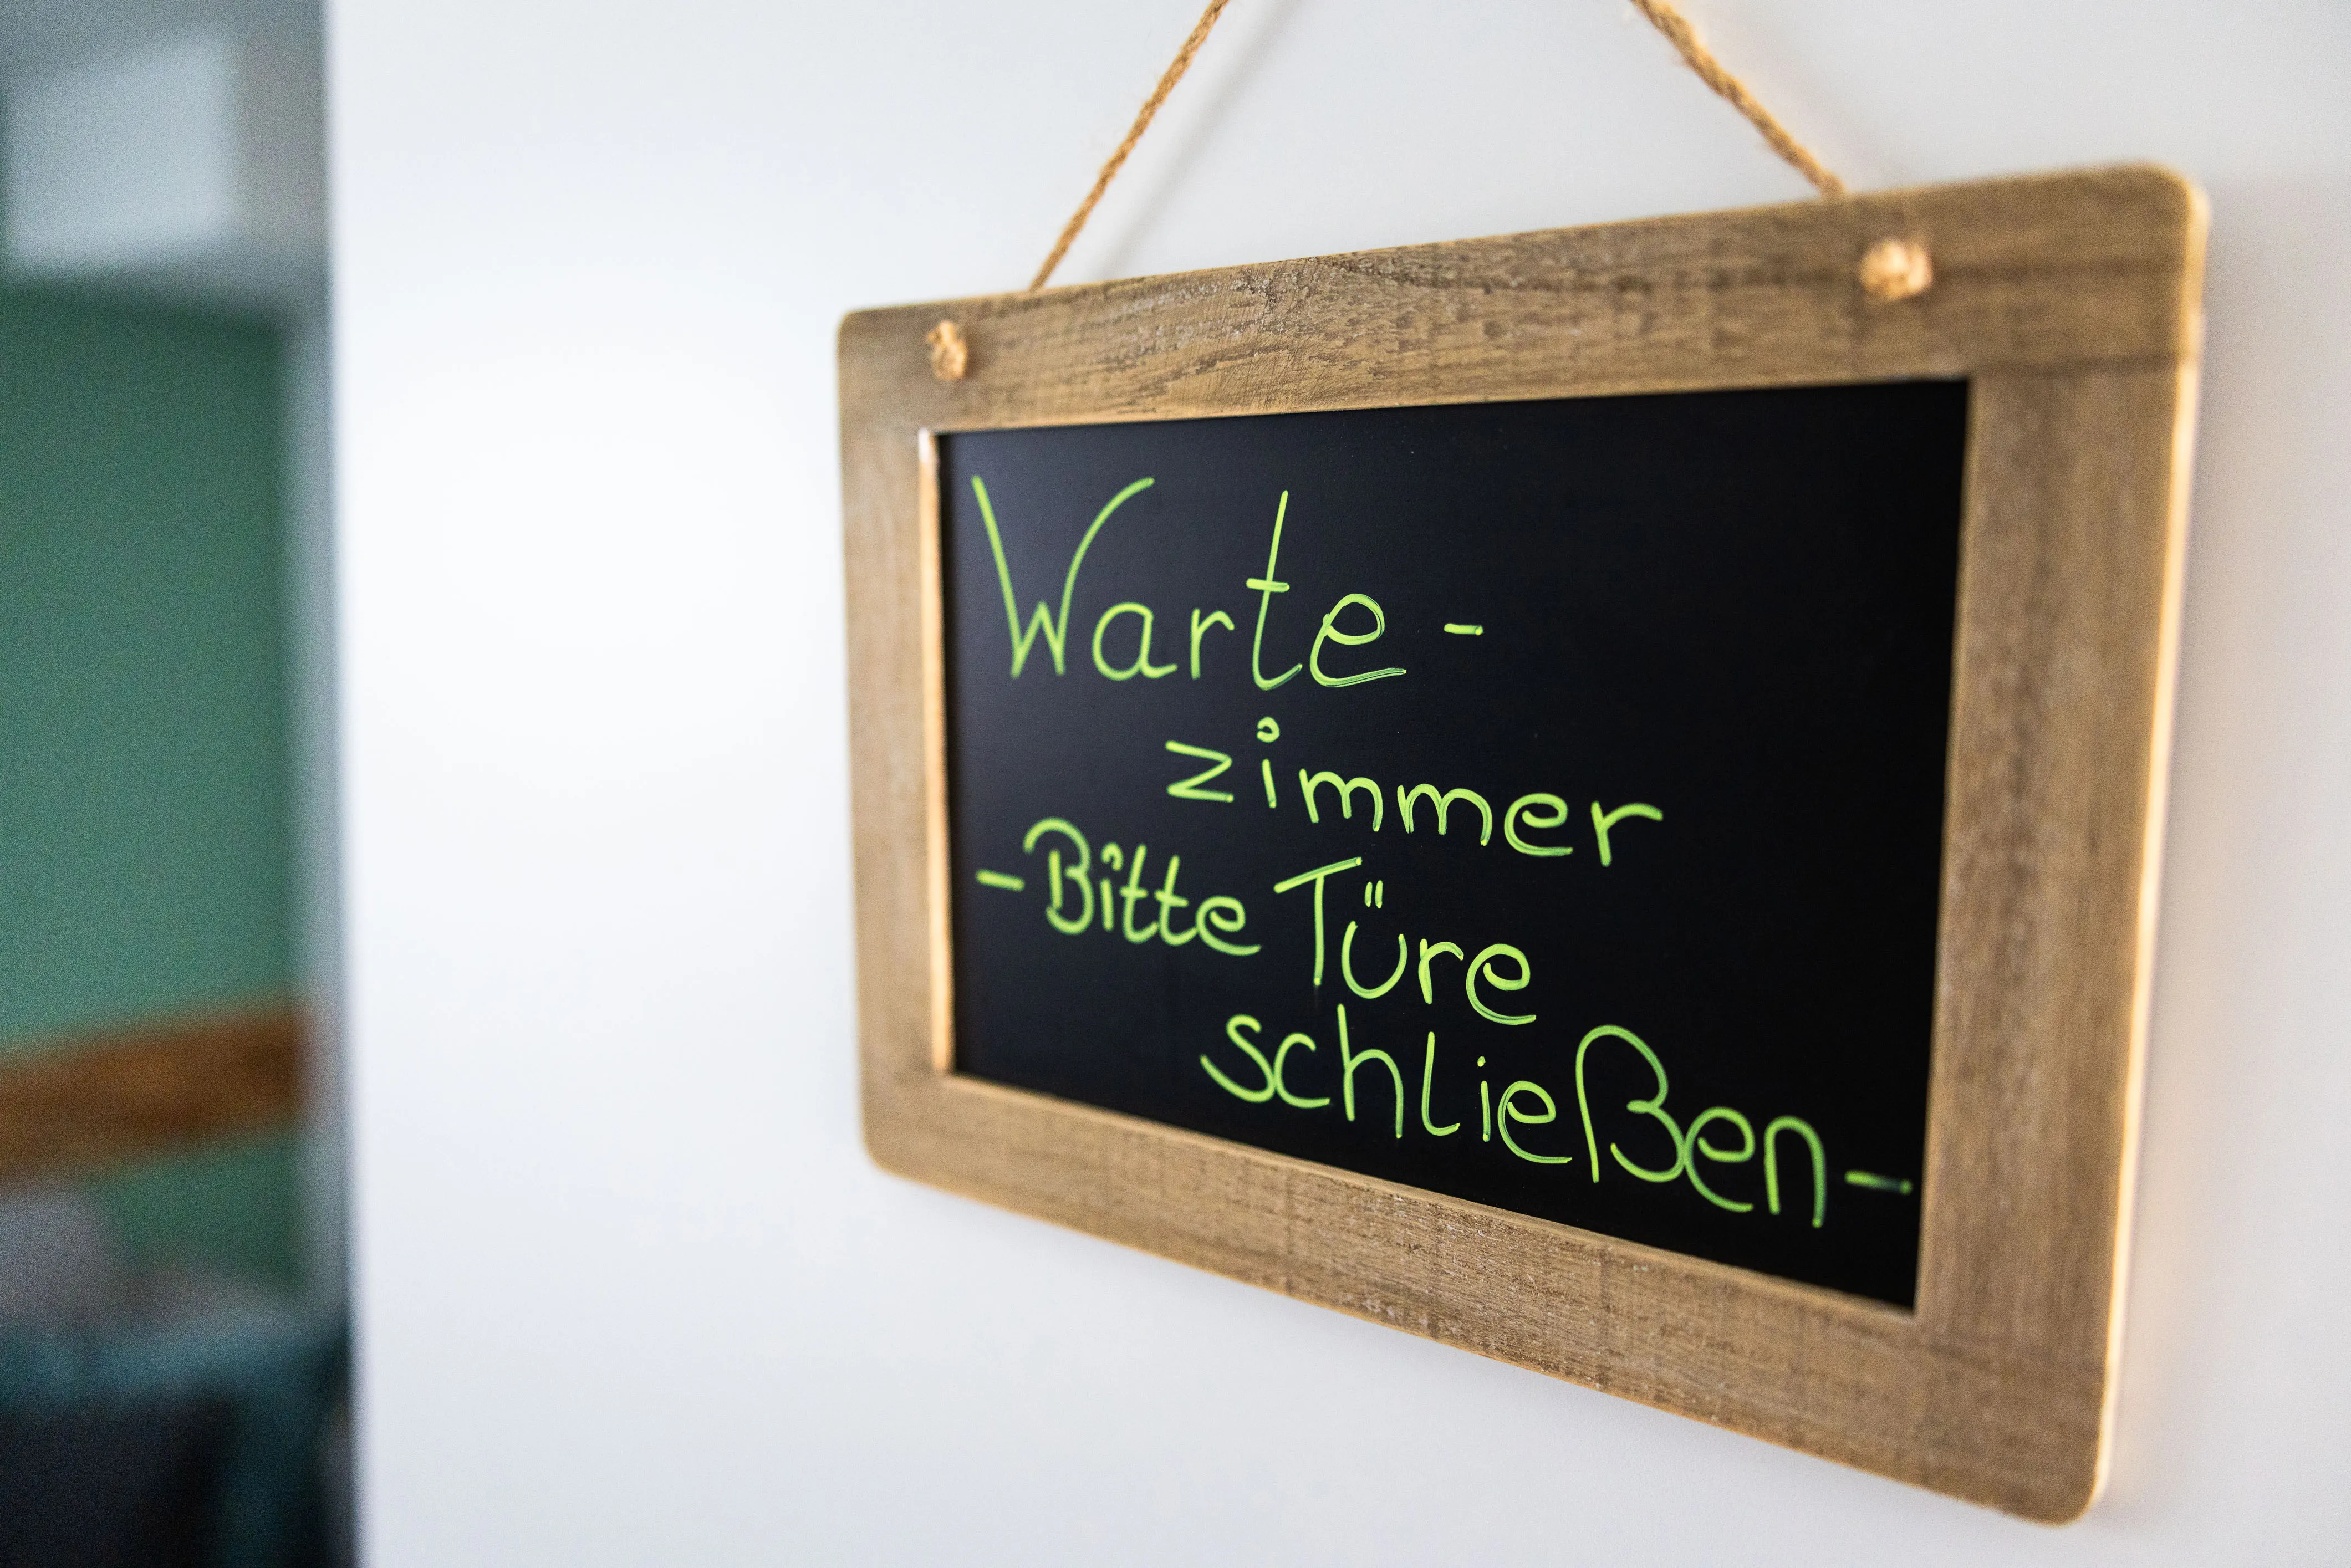 Warte-
zimmer
-Bitte Türe
schließen-